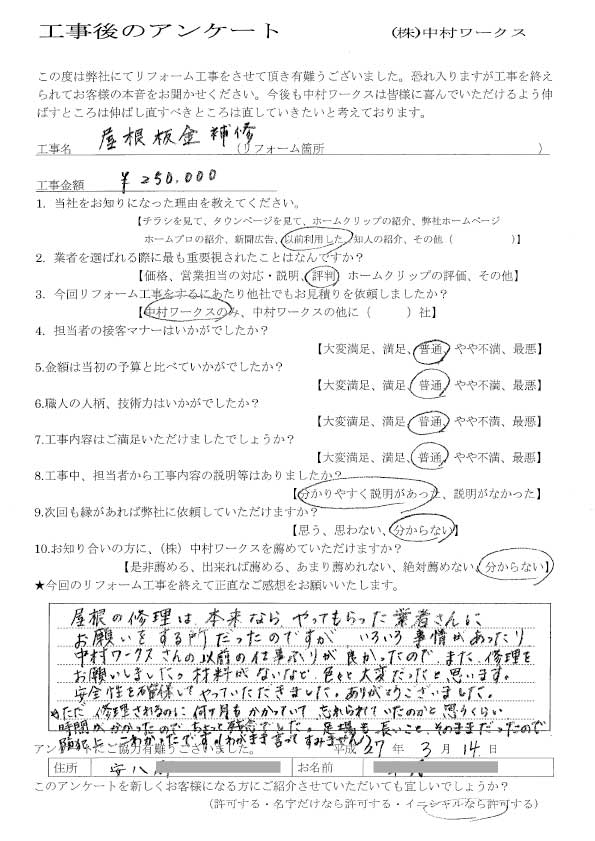 工事後のアンケート (株)中村ワークス
この度は弊社にてリフォーム工事をさせて頂き有難うございました。恐れ入りますが工事を終え
られてお客様の本音をお聞かせください。今後も中村ワークスは皆様に喜んでいただけるよう伸
ばすところは伸ばし直すべきところは直していきたいと考えております。
工事名 屋根板金補修 (リフォーム箇所 )
工事金額 ¥250,000
1. 当社をお知りになった理由を教えてください。
【チラシを見て、タウンページを見て、ホームクリップの紹介、弊社ホームページ
ホームプロの紹介、新聞広告、以前利用した、知人の紹介、その他（ ）】
2. 業者を選ばれる際に最も重要視されたことはなんですか？
【価格、営業担当の対応・説明、評判、ホームクリップの評価、その他】
3. 今回リフォーム工事をするにあたり他社でもお見積りを依頼しましたか？
【中村ワークスのみ、中村ワークスの他に（ ）社】
4. 担当者の接客マナーはいかがでしたか？
【大変満足、満足、普通、やや不満、最悪】
5.金額は当初の予算と比べていかがでしたか？
【大変満足、満足、普通、やや不満、最悪】
6.職人の人柄、技術力はいかがでしたか？
【大変満足、満足、普通、やや不満、最悪】
7.工事内容はご満足いただけましたでしょうか？
【大変満足、満足、普通、やや不満、最悪】
8.工事中、担当者から工事内容の説明等はありましたか？
【分かりやすく説明があった、説明がなかった】
9.次回も縁があれば弊社に依頼していただけますか？
【思う、思わない、分からない】
10.お知り合いの方に、（株）中村ワークスを薦めていただけますか？
【是非薦める、出来れば薦める、あまり薦めれない、絶対薦めない、分からない】
★今回のリフォーム工事を終えて正直なご感想をお願いいたします。
屋根の修理は、本来なら、やってもらった業者さんに
お願いをする所だったのですが いろいろ事情があったり
中村ワークスさんの以前の仕事ぶりが良かったので、また、修理を
お願いしました。材料がないなど、色々と大変だったと思います。
安全性を確保してやっていただきました。ありがとうございました。
ただ 修理されるのに 何ヶ月もかかっていて 忘れられていたのかと思うくらい
時間がかかったので ちょっと残念でした。足場も長いこと そのままだったので
こわかったです。(わがまま言ってすみません)
アンケートにご協力有難うございました。 平成 27 年 3 月 14 日
住所 安八 お名前
このアンケートを新しくお客様になる方にご紹介させていただいても宜しいでしょうか？
（許可する・名字だけなら許可する・イニシャルなら許可する）